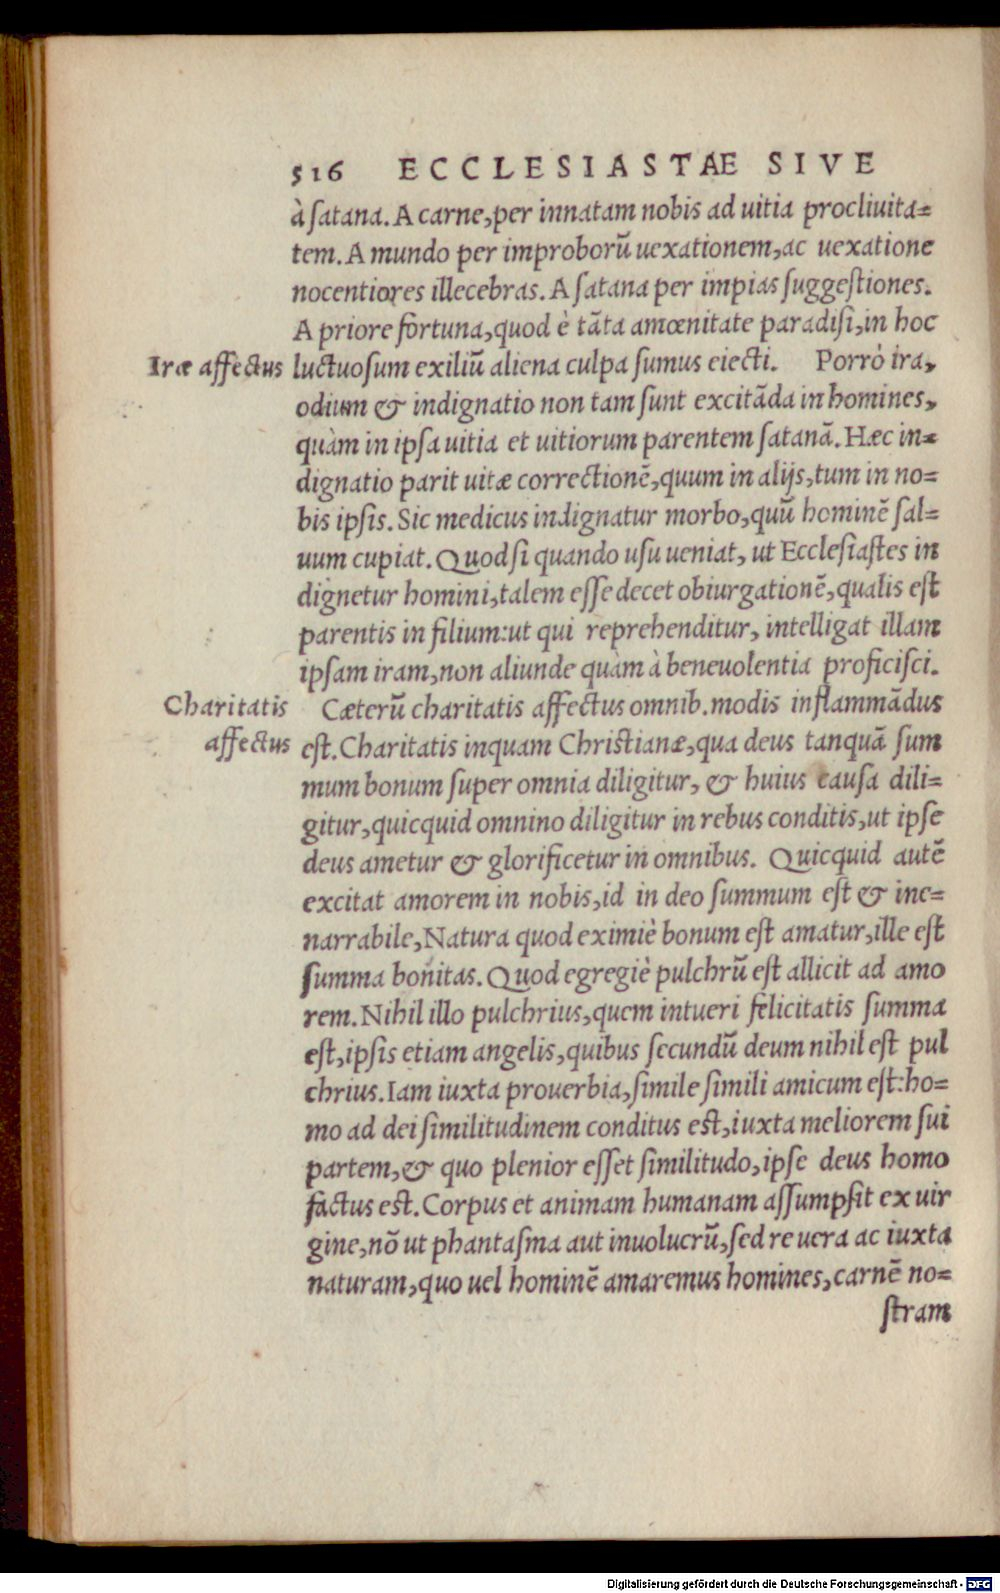 516 ECCLESIASTÆ SIVE
à satana. A carne, per innatam nobis ad uitia procliuita=
tem. A mundo per improborũ uexationem, ac uexatione
nocentiores illecebras. A satana per impias suggestiones.
A priore fortuna, quod è tãta amœnitate paradisi, in hoc
Iræ affectus luctuosum exiliũ aliena culpa sumus eiecti. Porrò ira,
odium & indignatio non tam sunt excitãda in homines,
quàm in ipsa uitia et uitiorum parentem satanã. Hæc in=
dignatio parit uitæ correctionẽ, quum in alijs, tum in no=
bis ipsis. Sic medicus indignatur morbo, quũ hominẽ sal=
uum cupiat. Quod si quando usu ueniat, ut Ecclesiastes in
dignetur homini, talem esse decet obiurgationẽ, qualis est
parentis in filium: ut qui reprehenditur, intelligat illam
ipsam iram, non aliunde quàm à beneuolentia proficisci.
Charitatis Cæterũ charitatis affectus omnib. modis inflammãdus
affectus est. Charitatis inquam Christianæ, qua deus tanquã sum
mum bonum super omnia diligitur, & huius causa dili=
gitur, quicquid omnino diligitur in rebus conditis, ut ipse
deus ametur & glorificetur in omnibus. Quicquid autẽ
excitat amorem in nobis, id in deo summum est & ine=
narrabile, Natura quod eximiè bonum est amatur, ille est
summa bonitas. Quod egregiè pulchrũ est allicit ad amo
rem. Nihil illo pulchrius, quem intueri felicitatis summa
est, ipsis etiam angelis, quibus secundũ deum nihil est pul
chrius. Iam iuxta prouerbia, simile simili amicum est: ho=
mo ad dei similitudinem conditus est, iuxta meliorem sui
partem, & quo plenior esset similitudo, ipse deus homo
factus est. Corpus et animam humanam assumpsit ex uir
gine, nõ ut phantasma aut inuolucrũ, sed re uera ac iuxta
naturam, quo uel hominẽ amaremus homines, carnẽ no=
stram
Digitalisierung gefördert durch die Deutsche Forschungsgemeinschaft - DFG